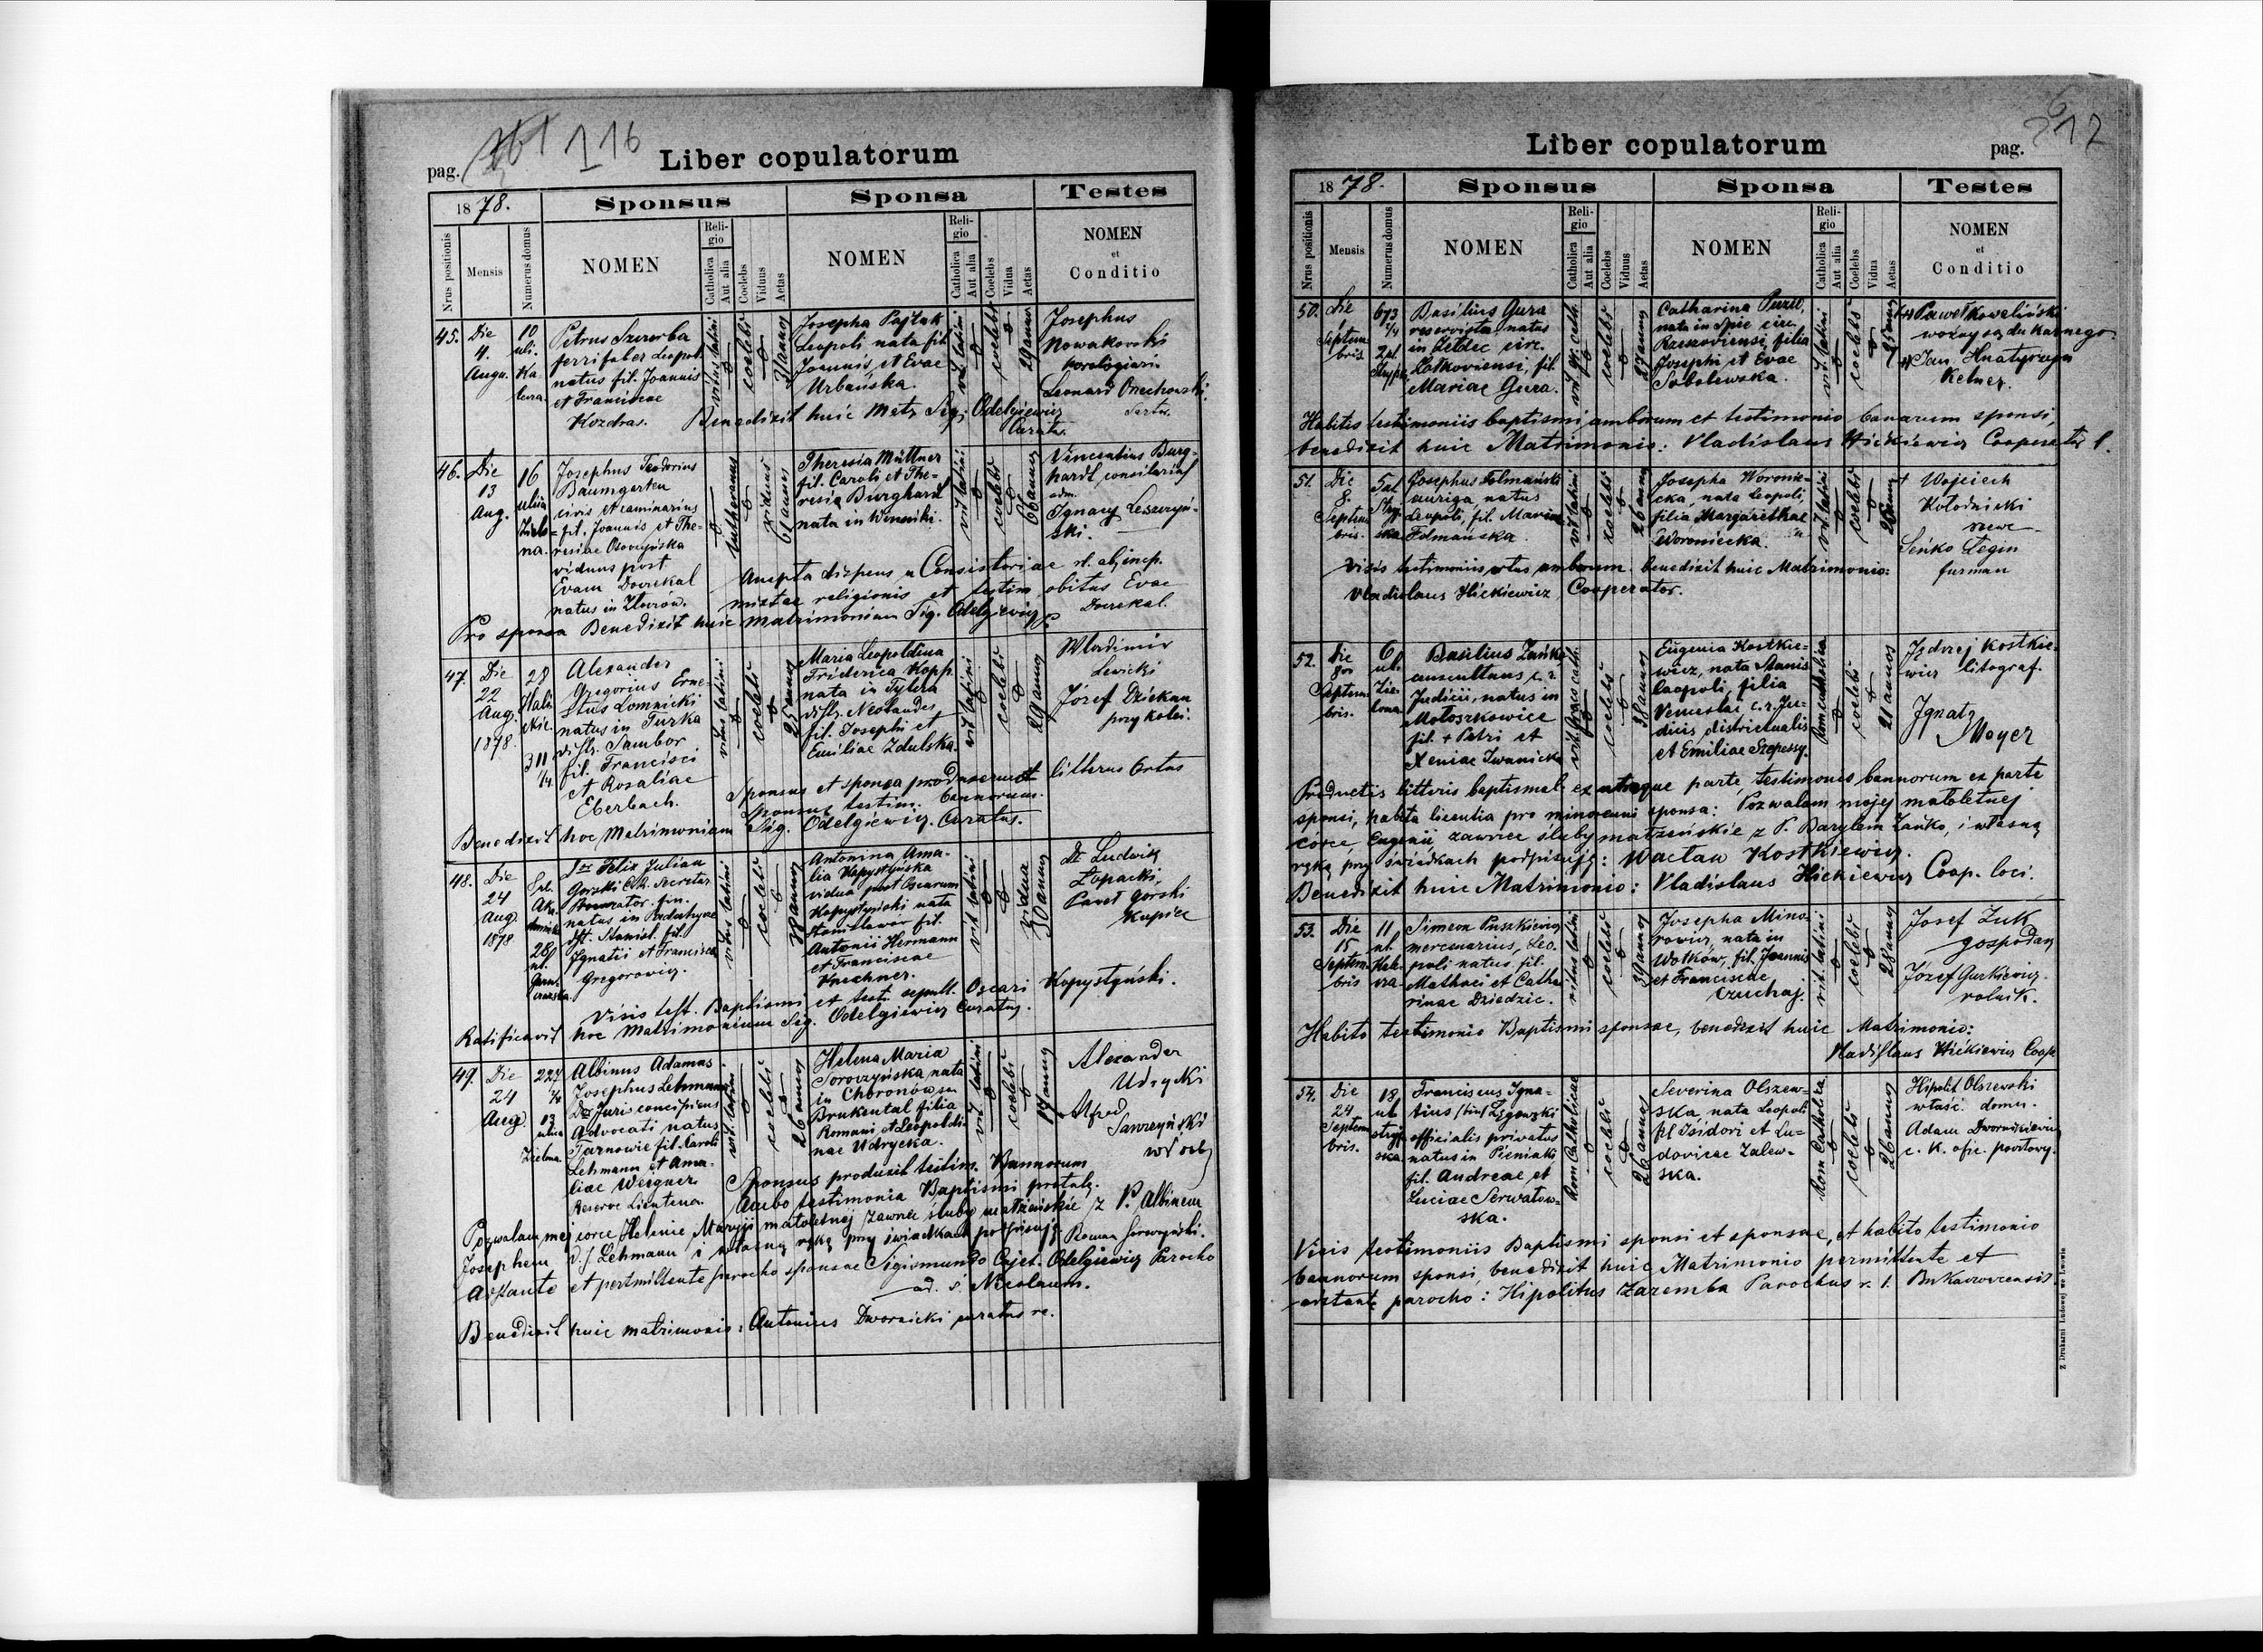 pag.
116
Liber copulatorum
1878.
Sponsus
Sponsa
Testes
Nrus positionis
Mensis
Numerus domus
NOMEN
Religio
Catholica
Aut alia
Coelebs
Viduus
Aetas
NOMEN
Religio
Catholica
Aut alia
Coelebs
Vidua
Aetas
NOMEN
et
Conditio
45. Die 4. Augu.
10 uli.
Petrus Szczerba
ferrifaber Leopoli
natus fil. Joannis
et Franciscae
Kozdras.
ritus latini
coelebs
Josepha Pajtak
Leopoli nata fil.
Joannis et Evae
Urbańska.
rit. latini
coelebs
29 annor
Josephus
Nowakowski
horologiari
Leonard Orechowski
Sartor.
Benedixit huic Matr. Sig. Odelgiewicz
Curatus.
46. Die 13 Aug.
16 ulica Zielona.
Josephus Teodorius
Baumgarten
civis et caminarius
fil. Joannis et Theresiae
viduus post
Evam Dovrekal
lutheranus
viduus
61 annor
Theresia Müttner
fil. Caroli et Theresia
Burghard
nata in Winniki.
rit latini
coelebs
66 annor
Vincentius Burghardt
consiliarius
Ignacy Leszczyński.
Accepta dispens a Consistoriae rl. ab imp.
mixtae religionis et testim. obitus Evae
Dovrekal.
Pro sponsa Benedixit huic matrimonium Sig. Odelgiewicz
47. Die 22 Aug. 1878.
28
311 1/4
Alexander
Gregorius Ernestus
Lomnicki
natus in Turka
distr. Sambor
fil. Francisci
et Rosaliae
Eberbach.
ritus latini
coelebs
25 annor
Maria Leopoldina
Friderica Kopp
nata in Tylicza
distr. Neosandes
fil. Josephi et
Emiliae Zdulska.
rit latini
coelebs
29 annor
Wladimir
Lewicki
Józef Dziekan
przy kolei.
Sponsus et sponsa produxerunt litterus Ortus
Sponsus testim. bannorum.
Benedixit hoc Matrimonium Sig. Odelgiewicz. Curatus.
48. Die 24 Aug. 1878
Dr Felix Julian
Gorski C.R. Secretar
fin.
natus in
dist. Stanisl. fil.
Ignatii et Francisca
Gregorowicz.
ritus latini
coelebs
38 annor
Antonina Amalia
Kopystyńska
vidua post Oscarum
Kopystyński nata
Stanislawów fil.
Antonii Hermann
et Franciscae
Kuchner.
rit latini
vidua
30 annor
Dr Ludwig
Łopacki,
Paweł Gorski
Kupiec
Visis test. Baptismi et testi sepult. Oscari Kopystyński.
Ratificavit hoc Matrimonium Sig. Odelgiewicz Curatus.
49. Die 24 Aug.
227 2/4
13 ulica Zielona
Albinus Adamas
Josephus Lehmann
Dr Juris concipiens
Advocati natus
Tarnowie fil. Caroli
Lehmann et Amaliae
Weigner
Reserve Lieutena.
rit. latini
coelebs
26 annor
Helena Maria
Soroczyńska nata
in Chronów
Brukental filia
Romani et Leopoldinae
Udrycka.
rit latini
coelebs
19 annor
Alexander
Udrycki
Alfred
Sawczyński
Sponsus produxit testim. Bannorum
Ambo testimonia Baptismi protulę.
Pozwalam mej corce Helenie Maryji małoletnej zawrzeć śluby małżeńskie z P. Albinem
Josephem D.J. Lehmann i własną ręką przy świadkach podpisuję. Roman Soroczyński.
Adstante et permittente parocho sponsae Sigismundo Cajet. Odelgiewicz Parocho
ad. S. Nicolaum.
Benedixit huic matrimonio: Antonius Dwornicki curatus re.
Liber copulatorum
pag.
1878.
Sponsus
Sponsa
Testes
Nrus positionis
Mensis
Numerus domus
NOMEN
Religio
Catholica
Aut alia
Coelebs
Viduus
Aetas
NOMEN
Religio
Catholica
Aut alia
Coelebs
Vidua
Aetas
NOMEN
et
Conditio
50. Die Septembris
673 1/4
Basilius Gura
reservista natus
in circ.
Zołkoviensi, fil.
Mariae Gura.
rit. gr. cath.
coelebs
27 annor
Catharina
nata in circ.
Rzeszoviensi, filia
Josephi et Evae
Sobolewska.
rit. latini
coelebs
25 annor
Paweł Kowaliński
woźny sądu karnego
Jan Hnatyszyn
Kelner.
Habitis testimoniis baptismi amborum et testimonio banarum sponsi,
benedixit huic Matrimonio: Vladislaus Hickiewicz Cooperator l.
51. Die 8. Septembris.
Josephus Folmański
auriga, natus
Leopoli, fil. Mariae
Folmańska.
rit latini
coelebs
26 annor
Josepha Woroniecka,
nata Leopoli,
filia Margarethae
Woroniecka.
rit. latini
coelebs
26 annor
† Wojciech
Kołodnicki
szewc
Seńko Legin
furman
Visis testimoniis ortus amborum benedixit huic Matrimonio:
Vladislaus Hickiewicz Cooperator.
52. Die 8va Septembris.
6 ul. Zielona
Basilius Zańko
auscultans c. r.
Judicii, natus in
Mołoszkowice
fil. † Petri et
Xeniae Iwanicka
rit. graeco cath.
coelebs
38 annor
Eugenia Kostkiewicz,
nata Stanis
Leopoli, filia
Venceslai c. r. Judicis
districtualis
et Emiliae Szepessy.
Rom. catholica
coelebs
21 annor
Jędrzej Kostkiewicz
litograf.
Ignatz
Mayer
Productis litteris baptismal. ex utraque parte, testimonio bannorum ex parte
sponsi, habita licentia pro minorenni sponsa: Pozwalam mojej małoletnej
córce, Eugenii, zawrzeć śluby małżeńskie z P. Bazylem Zańko, i własną
ręką przy świadkach podpisuję: Wacław Kostkiewicz.
Benedixit huic Matrimonio: Vladislaus Hickiewicz Coop. loci.
53. Die 15 Septembris
11 ul.
Simeon Puszkiewicz
mercenarius, Leopoli
natus, fil.
Mathaei et Catharinae
Dziedzic.
ritus latini
coelebs
39 annor
Josepha Minorowicz,
nata in
Wołków, fil. Joannis
et Franciscae
Czuchaj.
rit latini
coelebs
28 annor
Josef Zuk
gospodarz
Józef Gurkiewicz
rolnik.
Habito testimonio Baptismi sponsae, benedixit huic Matrimonio:
Vladislaus Hickiewicz Coop
54. Die 24 Septembris.
18 ul. Stryjska.
Franciscus Ignatius
/bin/ Łęgowski
officialis privatus
natus in Pieniaki
fil. Andreae et
Luciae Serwatowska.
Rom Catholicae
coelebs
26 annor
Severina Olszewska,
nata Leopoli
fil Isidori et Ludovicae
Zalewska.
Rom Catholica
coelebs
26 annor
Hipolit Olszewski
właść. domu.
Adam Dwornikiewicz
c. K. ofic. pocztowy.
Visis testimoniis Baptismi sponsi et sponsae, et habito testimonio
bannorum sponsi, benedixit huic Matrimonio permittente et
adstante parocho: Hipolitus Zaremba Parochus r. l. Bukaczovcensis
Z Drukarni Ludowej we Lwowie